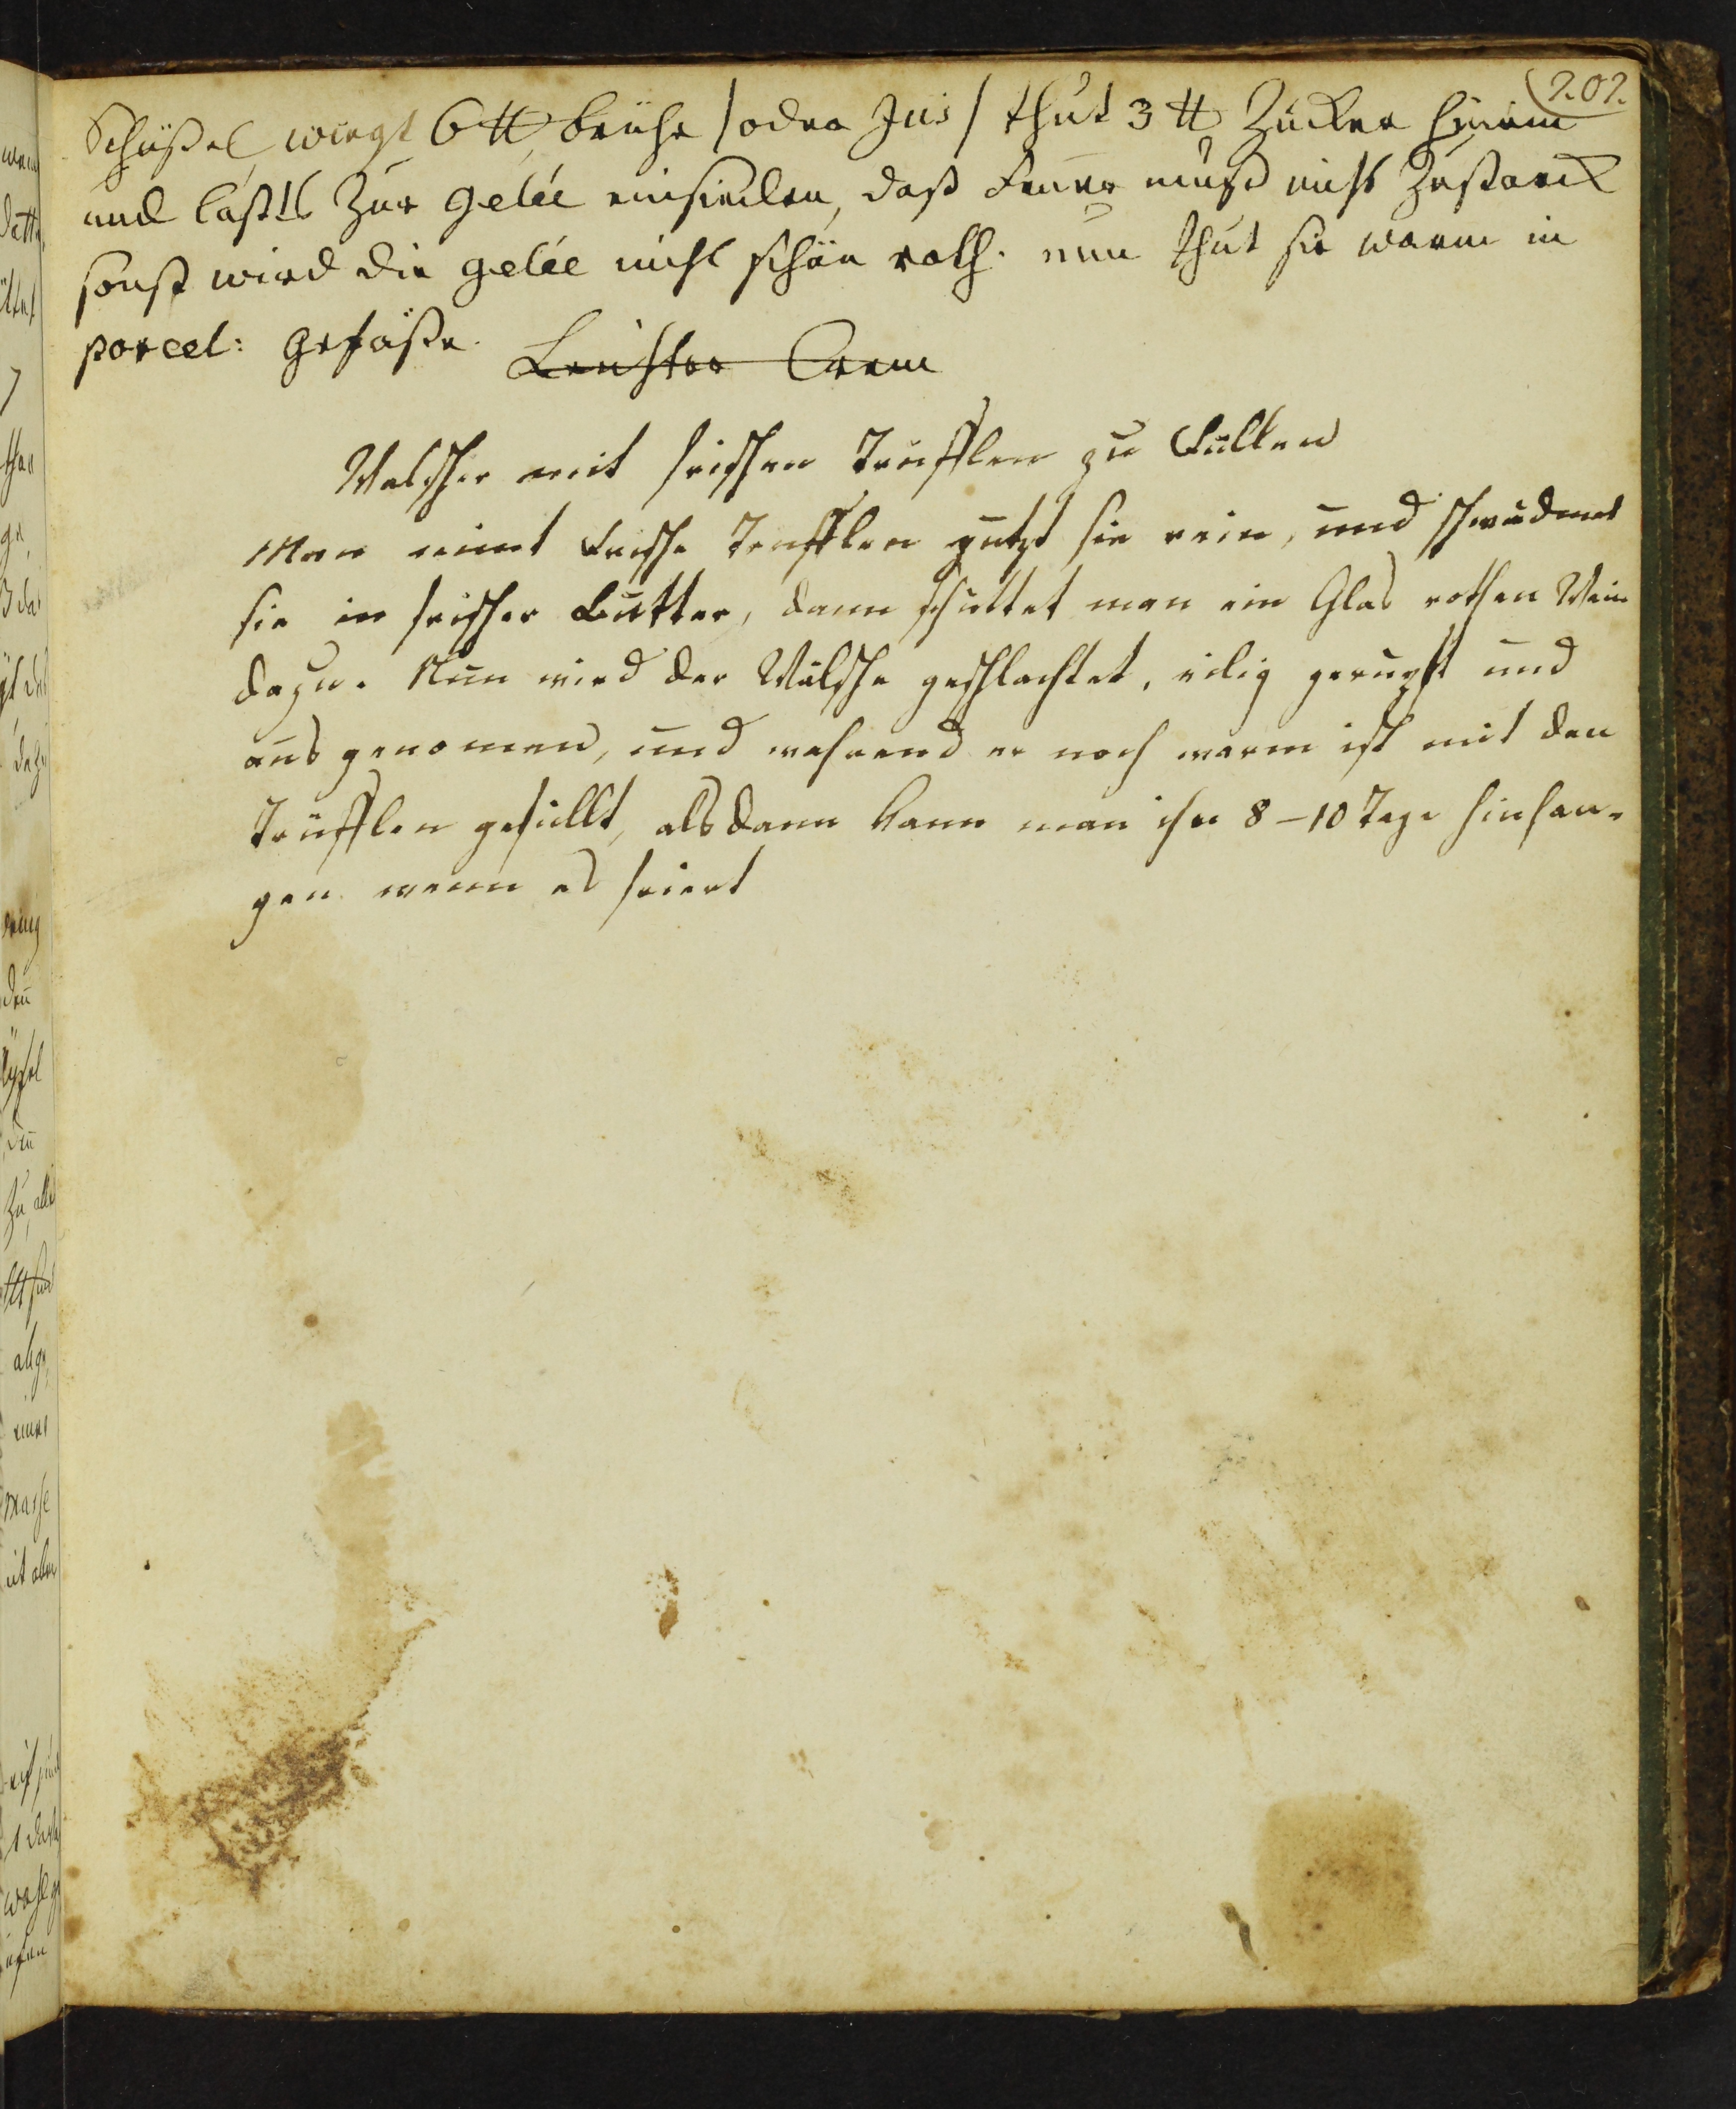 202.
Schüßel, wiegt 6 ℔ brühe / oder Jus / thut 3 ℔ Zucker hinein
und laßts Zur gelée einsieden, daß Feuer muß nicht Zustarck
sonst wird die gelée nicht schön roth. nun thut sie warm in
porcel: gefäße.
Leichter Crem
Walscher mit frischen Truffeln zu Füllen
Man nimt frische Trufflen putzt sie rein, und schwüdmet
sie in frischer Butter, dann schüttet man ein Glas rothen Wein
dazu. Nun wird der Wälsche geschlachtet, eilig gerupft und
aus genomen, und während er noch warm ist mit den
Trüfflen gefüllt, alsdann kann man ihn 8-10 Tage hinhan-
gen wenn es friert